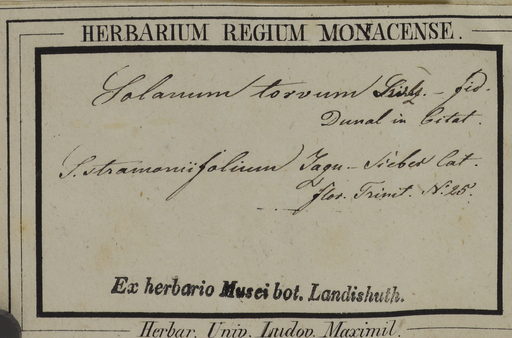 HERBARIUM REGIUM MONACENSE.
Solanum torvum — fid.
Dunal in Citat.
S. stramoniifolium Jaqu — Sieber Cat.
flor. Trinit. N. 25.
Ex herbario Musei bot. Landishuth.
Herbar. Univ. Ludov. Maximil.